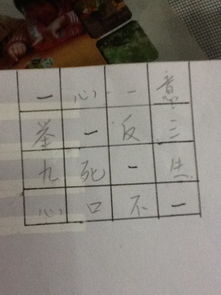 一心一意
举一反三
九死一生
心口不一